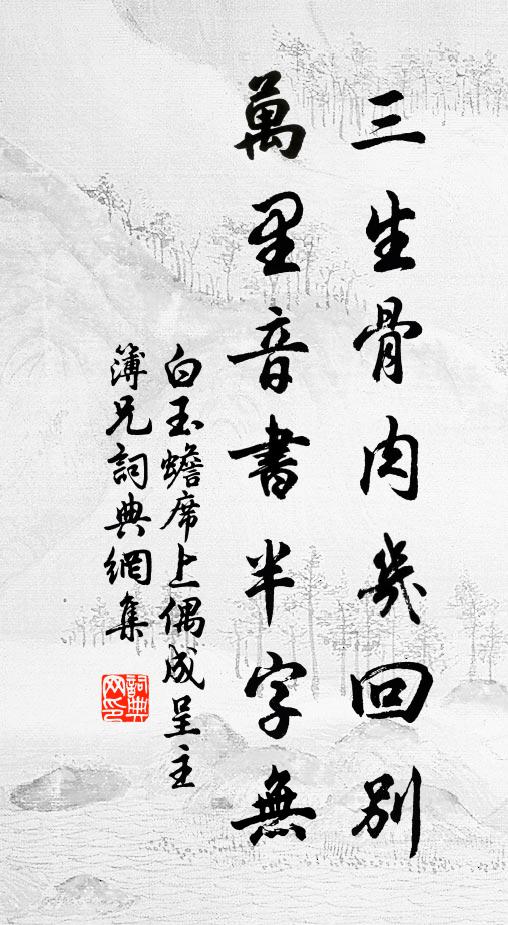 三生骨肉幾回別
萬里音書半字無
白玉蟾席上偶成呈主
簿兄詞典網集
詞典
网印